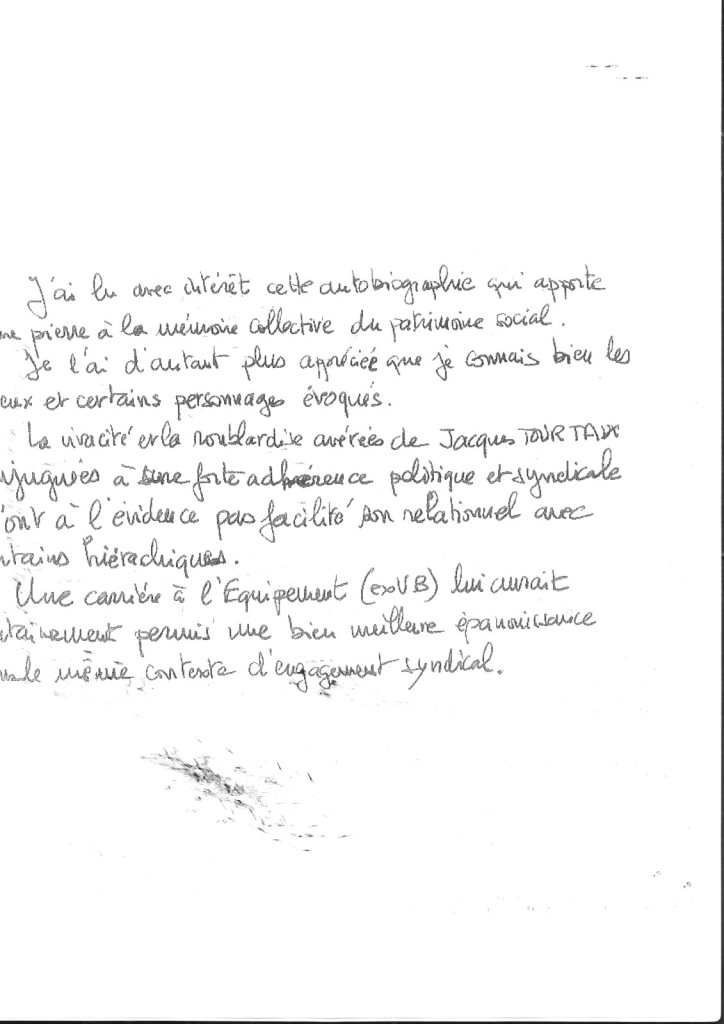 J'ai lu avec intérêt cette autobiographie qui apporte
ne pierre à la mémoire collective du patrimoine social.
Je l'ai d'autant plus appréciée que je connais bien les
eux et certains personnages évoqués.
La vivacité et la roublardise avérées de Jacques TOURTAUX
njuguées à une forte adhérence politique et syndicale
'ont à l'évidence pas facilité son relationnel avec
rtains hiérachiques.
Une carrière à l'Equipement (exVB) lui aurait
tainement permis une bien meilleure épanouissance
le même contexte d'engagement syndical.